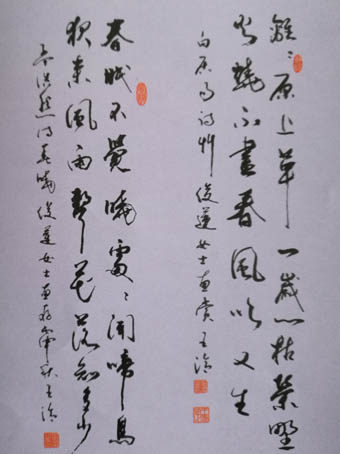 離〻原上草一歲一枯榮野
火燒不盡春風吹又生
詩艸俊蓮女士惠賞王
春眠不覺曉處〻聞啼鳥
夜來風雨聲花落知多少
孟浩然詩春曉俊蓮女士惠存王